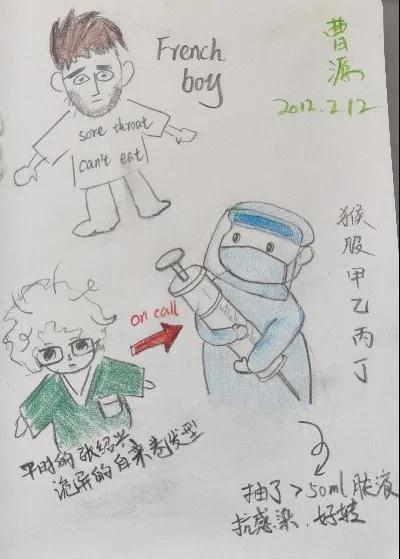 French
boy
曹源
2012.2.12
sore throat
can't eat
猴服甲乙丙丁
on call
平时的张绍兴
诡异的自来卷发型
抽了>50ml脓液
抗感染、好转